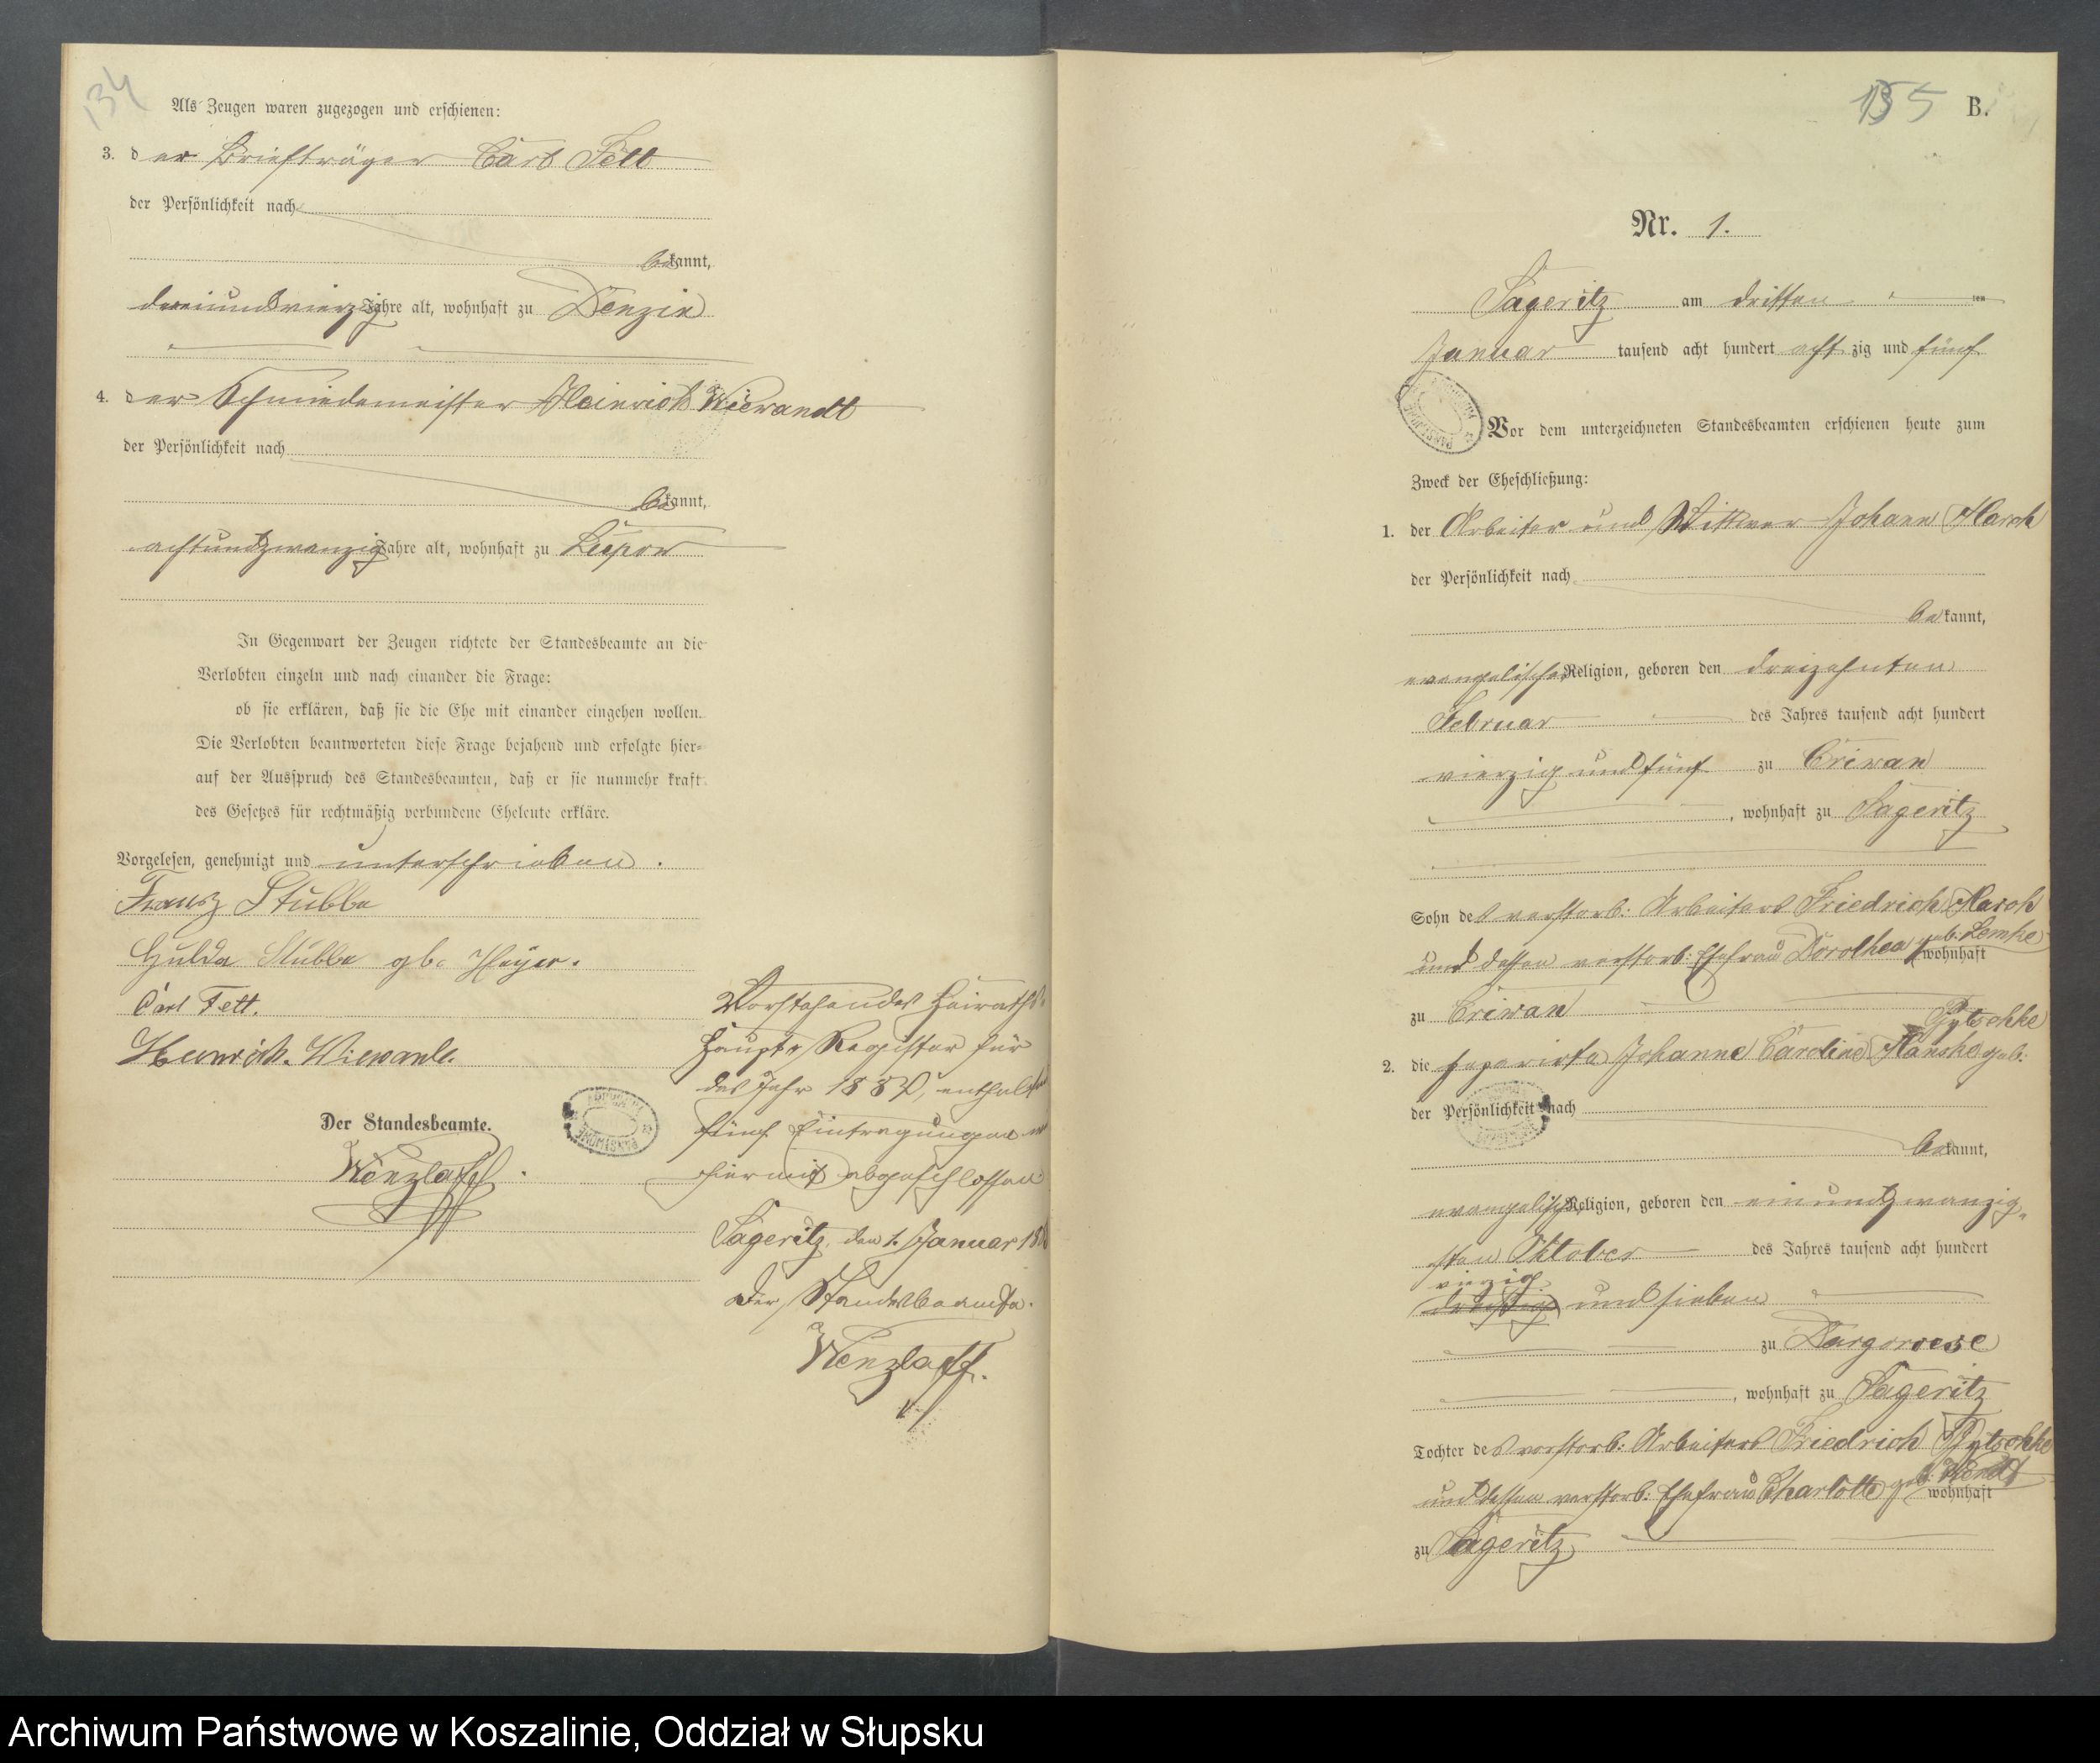 134
Als Zeugen waren zugezogen und erschienen:
3. der Briefträger Carl Fett
der Persönlichkeit nach
bekannt,
dreiundvierzig Jahre alt, wohnhaft zu Denzin
4. der Schmiedemeister Heinrich Wiewandt
der Persönlichkeit nach
bekannt,
achtundzwanzig Jahre alt, wohnhaft zu Lupow
In Gegenwart der Zeugen richtete der Standesbeamte an die
Verlobten einzeln und nach einander die Frage:
ob sie erklären, daß sie die Ehe mit einander eingehen wollen.
Die Verlobten beantworteten diese Frage bejahend und erfolgte hier-
auf der Ausspruch des Standesbeamten, daß er sie nunmehr kraft
des Gesetzes für rechtmäßig verbundene Eheleute erkläre.
Vorgelesen, genehmigt und unterschrieben.
Franz Stubbe
Hulda Stubbe gb. Heyer.
Carl Fett.
Heinrich Wiewandt.
Der Standesbeamte.
Wenzlaff
Vorstehendes Heiraths-
Haupt-Register für
das Jahr 1884, enthaltend
fünf Eintragungen
hiermit abgeschlossen
Sageritz, den 1. Januar 188
Der Standesbeamte.
Wenzlaff.
135
B.
Nr. 1.
Sageritz am dritten ten
Januar tausend acht hundert achtzig und fünf
Vor dem unterzeichneten Standesbeamten erschienen heute zum
Zweck der Eheschließung:
1. der Arbeiter und Wittwer Johann Harch
der Persönlichkeit nach
bekannt,
evangelischer Religion, geboren den dreizehnten
Februar des Jahres tausend acht hundert
vierzig und fünf zu Criwan
, wohnhaft zu Sageritz
Sohn des verstorb: Arbeiters Friedrich Harch
und dessen verstorb: Ehefrau Dorothea geb. Lemke wohnhaft
zu Criwan
2. die separirte Johanne Caroline Hanske geb: Pytschke
der Persönlichkeit nach
bekannt,
evangelischer Religion, geboren den einundzwanzig-
sten Oktober des Jahres tausend acht hundert
vierzig
dreißig und sieben
zu Dargoroese
, wohnhaft zu Sageritz
Tochter des verstorb: Arbeiters Friedrich Pytschke
und dessen verstorb: Ehefrau Charlotte geb. Wendt wohnhaft
zu Sageritz
Archiwum Państwowe w Koszalinie, Oddział w Słupsku